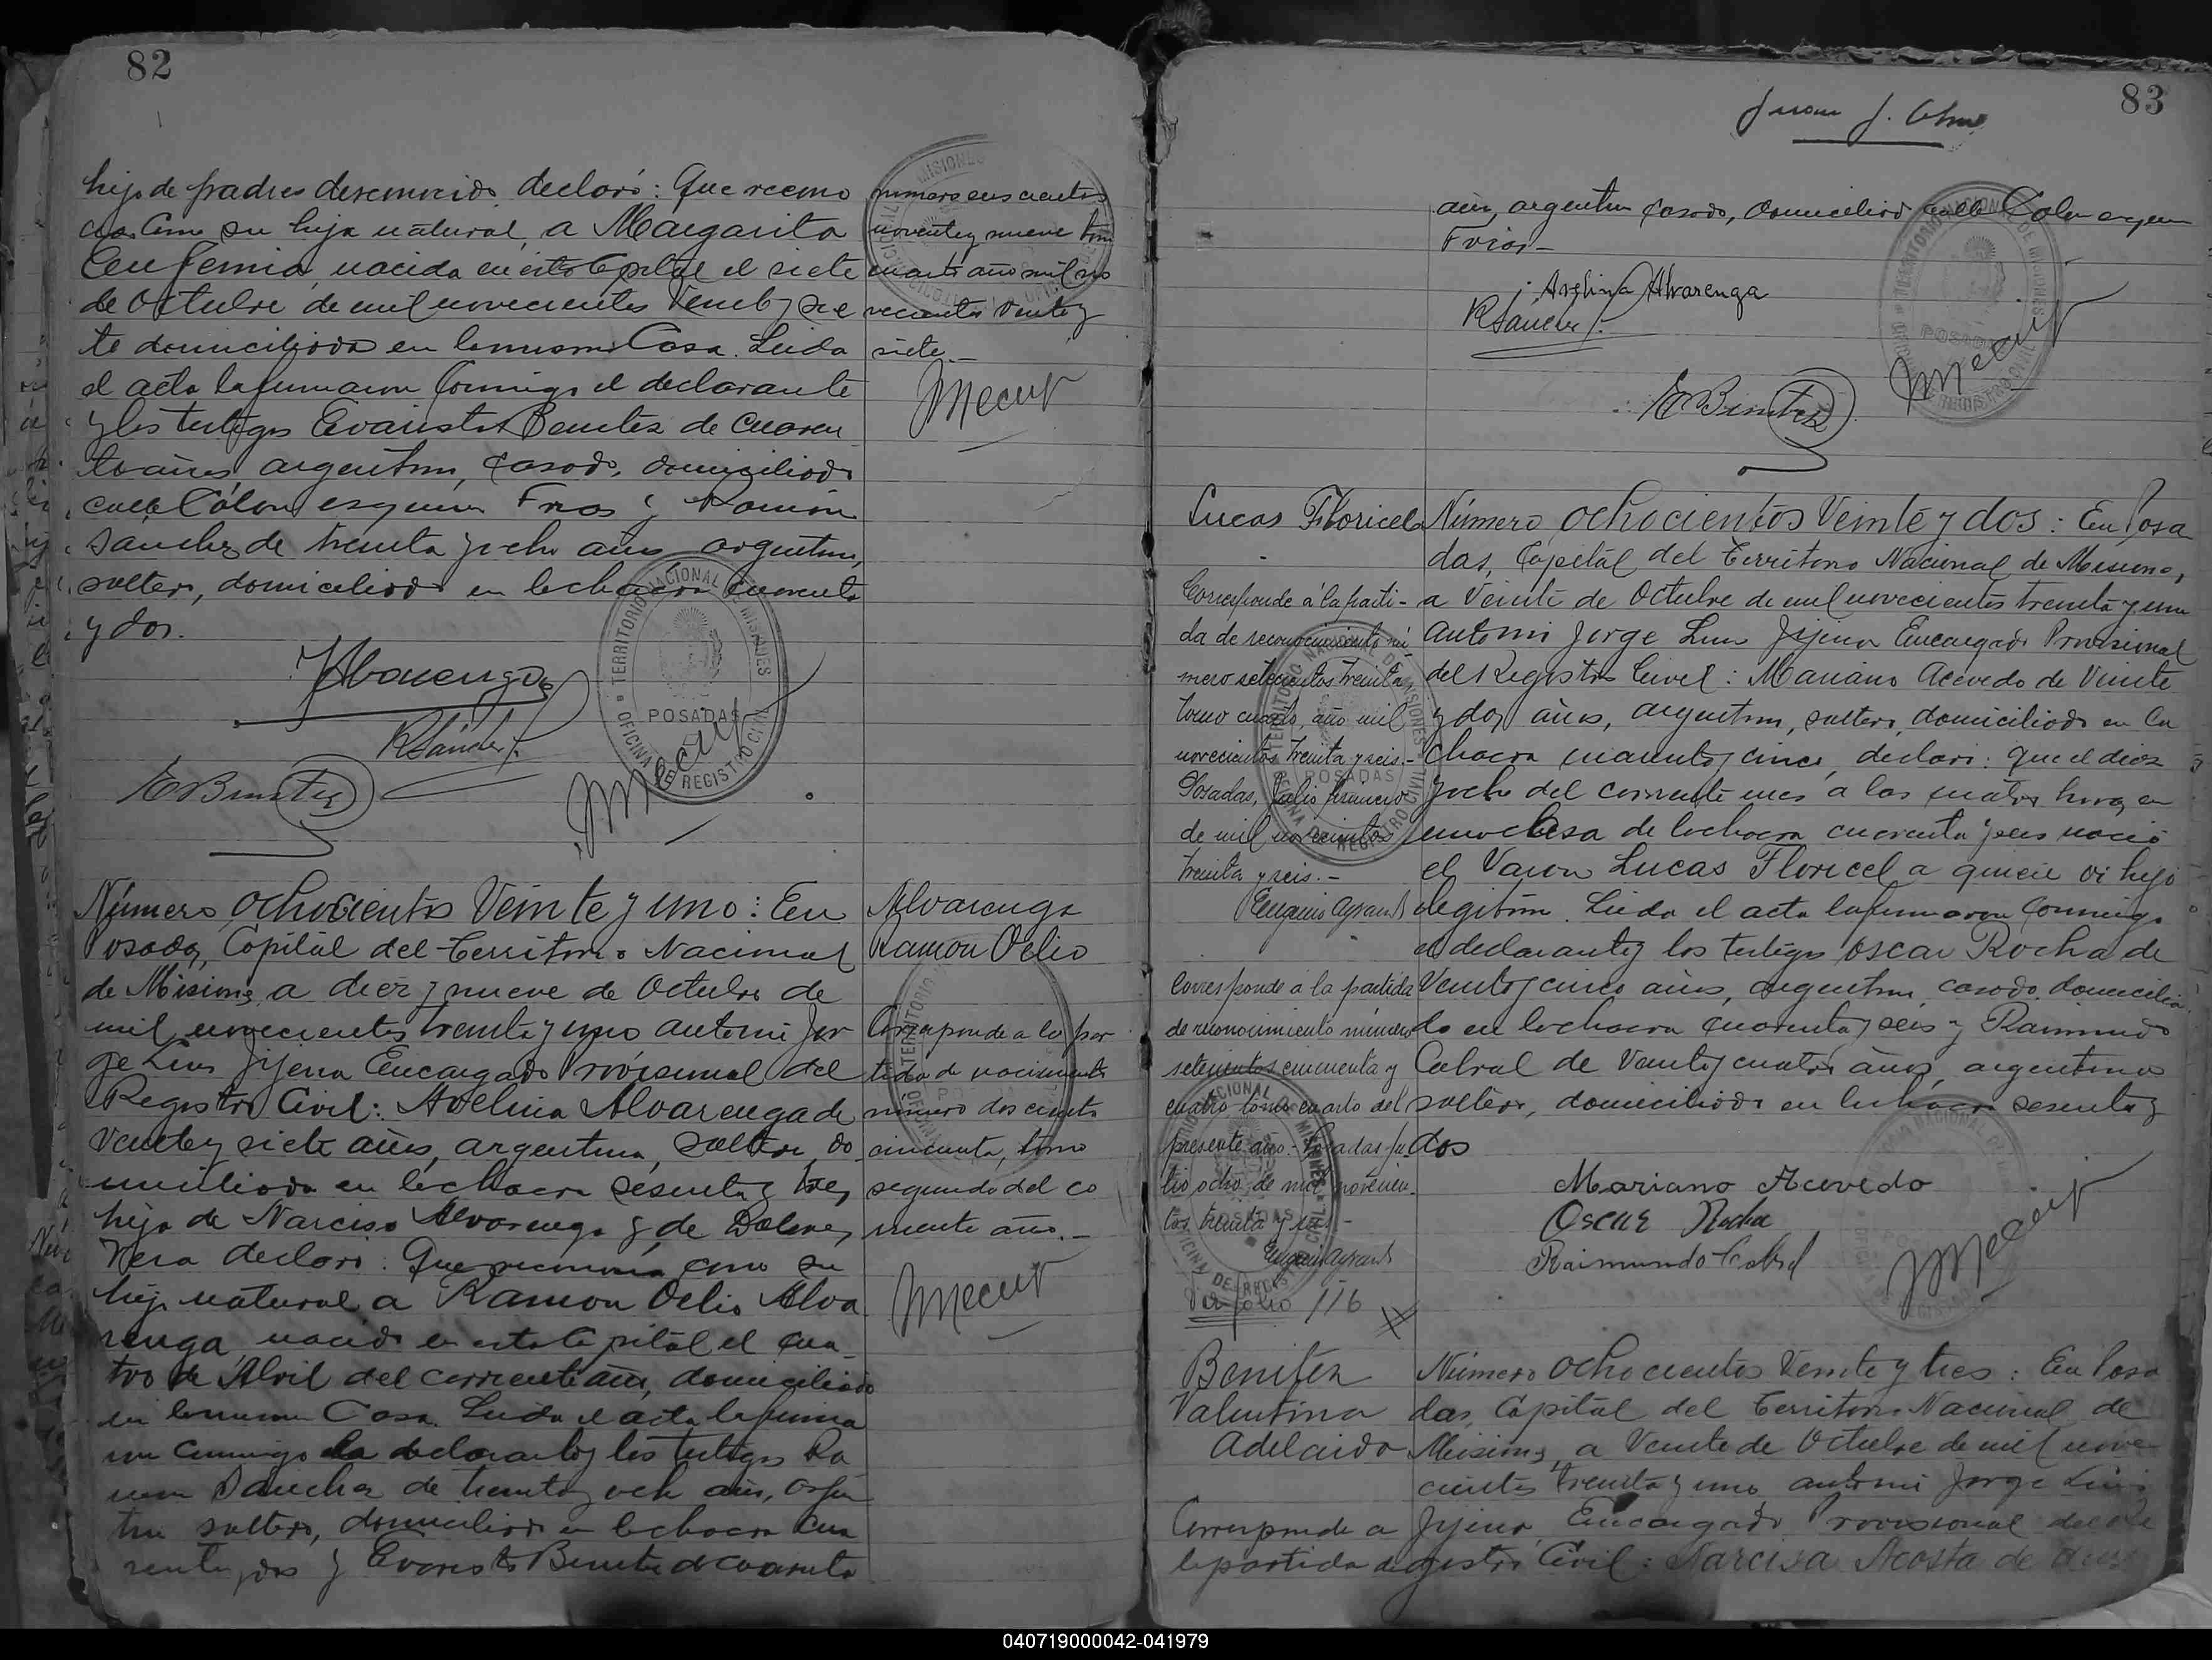 82
hijo de padres desconocido declaró: Que recono
ce como su hija natural, a Margarita
Eufemia, nacida en esta Capital el siete
de Octubre de mil novecientos Veinte y sie
te domiciliada en la misma Casa. Leida
el acta la firmaron conmigo el declarante
y los testigos Evaristo Benitez de cuaren
ta años, argentino, casado, domiciliado
calle Cólon esquina Frias y Ramón
Sanchez de treinta y ocho años argentino,
soltero, domiciliado en la chacra cuarenta
y dos.
numero seis cientos
noventa y nueve tomo
cuarto año mil no
vecientos veinte y
siete.
JAlvarenga
RSánchez
EBenitez
TERRITORIO NACIONAL DE MISIONES
POSADAS
OFICINA DE REGISTRO CIVIL
Número ochocientos Veinte y uno: En
Posadas, Capital del Territorio Nacional
de Misiones a diez y nueve de Octubre de
mil novecientos treinta y uno ante mi Jor
ge Luis Jijena Encargado Provisional del
Registro Civil: Avelina Alvarenga de
Veinte y siete años, argentina, soltera, do
miciliada en la chacra sesenta y tres,
hija de Narciso Alvarenga y de Dolores
Vera declaró: Que reconocía como su
hijo natural a Ramon Delio Alva
renga, nacido en esta Capital el cua
tro de Abril del corriente año, domiciliado
en la misma Casa. Leida el acta la firma
ron conmigo la declarante y los testigos Ra
mon Sanchez de treinta y ocho años, argen
tino soltero, domiciliado en la chacra cua
renta y dos y Evaristo Benitez de cuarenta
Alvarenga
Ramon Delio
Corresponde a la par
tida de nacimiento
número dos ciento
cincuenta, tomo
segundo del co
rriente año.
83
años, argentino casado, domiciliado calle Colon esquina
Frias
Avelina Alvarenga
RSanchez
EBenitez
Lucas Floricel
Número ochocientos Veinte y dos: En Posa
das, Capital del Territorio Nacional de Misiones,
a Veinte de Octubre de mil novecientos treinta y uno
ante mi Jorge Luis Jijena Encargado Provisional
del Registro Civil: Mariano Acevedo de Veinte
y dos años, argentino, soltero, domiciliado en la
chacra cuarenta y cinco, declaró: que el diez
y ocho del corriente mes a las cuatro horas, en
una Casa de la chacra cuarenta y seis nació
el Varon Lucas Floricel a quien vi hijo
legitimo. Leida el acta la firmaron conmigo
el declarante y los testigos Oscar Rocha de
Veinte y cinco años, argentino, casado, domicilia
do en la chacra cuarenta y seis y Raimundo
Cabral de Veinte y cuatro años, argentino
soltero, domiciliado en la chacra sesenta y
dos
Corresponde á la parti-
da de reconocimiento nú
mero setecientos treinta
tomo cuarto, año mil
novecientos treinta y seis.-
Posadas, Julio primero
de mil novecientos
treinta y seis.-
Corresponde a la partida
de reconocimiento número
setecientos cincuenta y
cuatro tomo cuarto del
presente año.- Posadas Ju-
lio ocho de mil novecien
tos treinta y seis.-
Ver folio 116
Mariano Acevedo
Oscar Rocha
Raimundo Cabral
Benitez
Valentina
Adelaida
Corresponde a
la partida de
Número ochocientos Veinte y tres: En Posa
das, Capital del Territorio Nacional de
Misiones, a Veinte de Octubre de mil nove
cientos treinta y uno ante mi Jorge Luis
Jijena Encargado Provisional del Re
gistro Civil: Narcisa Acosta de
040719000042-041979